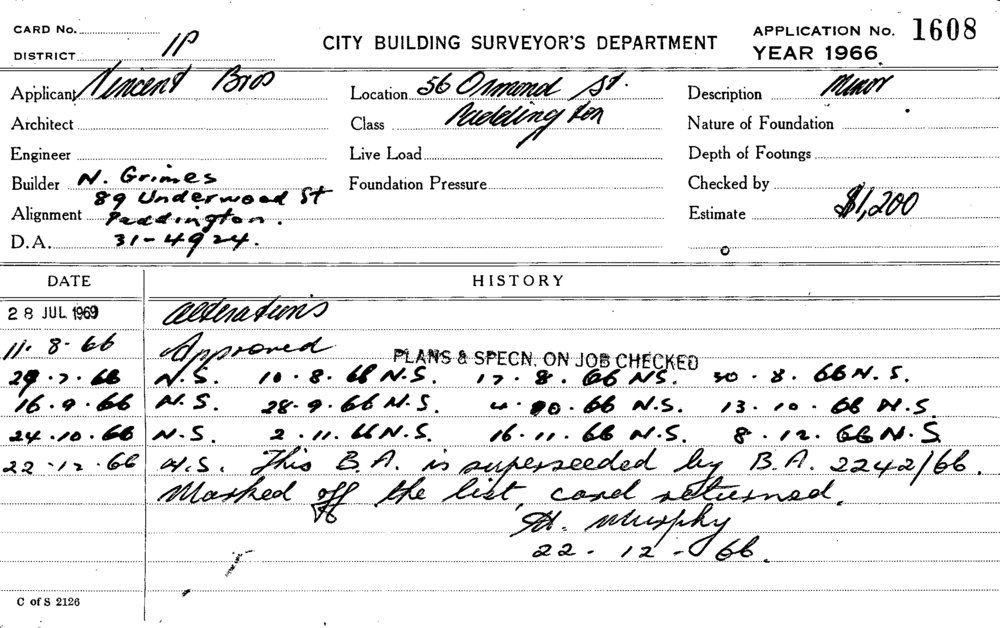 CARD No.
DISTRICT 1P
CITY BUILDING SURVEYOR'S DEPARTMENT
APPLICATION No. 1608
YEAR 1966
Applicant Vincent Bros
Location 56 Ormond St.
Description Minor
Architect
Class Paddington
Nature of Foundation
Engineer
Live Load
Depth of Footings
Builder N. Grimes
Foundation Pressure
Checked by
89 Underwood St
Alignment Paddington.
Estimate $1,200
D.A. 31-4924.
DATE HISTORY
28 JUL 1969 Alterations
11. 8. 66 Approved
PLANS & SPECN. ON JOB CHECKED
29.7.66 N.S. 10.8.66 N.S. 17.8.66 N.S. 30.8.66 N.S.
16.9.66 N.S. 28.9.66 N.S. 4.10.66 N.S. 13.10.66 N.S.
24.10.66 N.S. 2.11.66 N.S. 16.11.66 N.S. 8.12.66 N.S.
22.12.66 N.S. This B.A. is superseeded by B.A. 2242/66.
Marked off the list, card returned.
Murphy
22-12-66.
C of S 2126